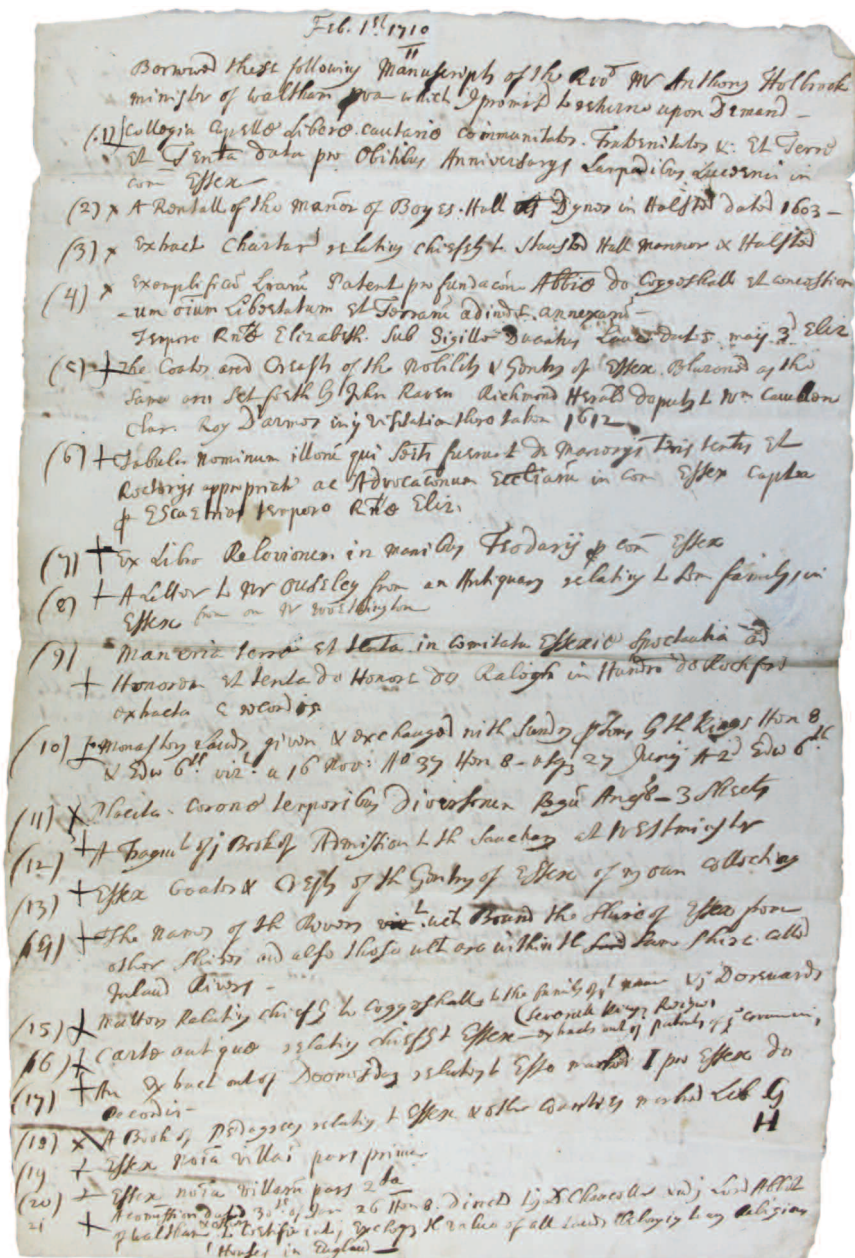 Feb. 1st 1710
11
Borrowed these following Manuscripts of the Revd Mr Anthony Holbrook
minister of Waltham which I promise to returne upon Demand –
(1) Collegia Capellæ Liberæ cantariæ communitates Fraternitates &c Et Terræ
Et Tenta data pro Obitibus Anniversarys Lampadibus Lucernis in
com Essex
(2) x A Rentall of the Manor of Boyes Hall Dynes in Halsted dated 1603 –
(3) x Extract Chartar relating chiefly to Stansted Hall Mannor & Halsted
(4) x Exemplificacõ Patent pro fundacõn Abbiæ de Coggeshall et concession
-um oium Libertatum et Terrarũ annexarũ –
Tempore Rnæ Elizabeth. Sub Sigillo Ducatus Lanc dat 5 may 3d Eliz
(5) + The Coates and Creasts of the Nobility & Gentry of Essex Blazoned as the
Same are Set forth by John Raven Richmond Herald deputy to Wm Camden
Clar. Roy D'armes in y visitation there taken 1612
(6) + Tabula Nominum illorũ qui de Manerys tenis et
Rectorys appropriat ac Advocaconum Eccliarũ in com Essex Capta
p tempore Rnæ Eliz.
(7) + Ex Libro Releviorum in manibus Feodarij p com Essex
(8) + A Letter to Mr Ouseley from an Antiquary relating to Som family in
Essex from one Mr
(9) Maneria terræ et tenta in comitatu Essexiæ Spectantia ad
+ Honorem et tenta de Honore de Ralegh in Hundro de Rochford
extracta e recordis
(10) + Monastery Lands given & exchanged with Sundry psons by th Kings Hen 8
& Edw 6th vizt a 16 Nov: Ao 37 Hen 8 – usq 27 Junij A 2d Edw 6th
(11) x Placita Coronæ temporibus diversorum Regũ Angl – 3 Sheets
(12) + A Fragmt of y Book of Admission to th Sanctuary at Westminster
(13) + Essex Coates & Crests of th Gentry of Essex of my own Collecting
(14) + The Names of th Rivers wch Bound the Shire of Essex from
other Shires and also those wch are within th Same Shire called
Inland Rivers –
(15) x Matters Relating chiefly to Coggeshall & the family of yt name & y Dorewards
(16) + Cartæ antiquæ relating chiefly to Essex – (Severall Kings Reigns extracts out of patents of
(17) + An Extract out of Doomesday relating to Essex marked I pro Essex de
Recordis –
(18) x A Book of Pedegrees relating to Essex & other Counties marked Lib G
H
(19 + Essex Noĩa villarũ pars prima
(20) + Essex noĩa villarũ pars 2da
21 + A comission dated 30th of Jan 26 Hen 8. direct to y Ld Chancellor and y Lord Abbot
of Waltham & others to Certifie into y Excheqr th value of all Lands belonging to any religious
Houses in England –